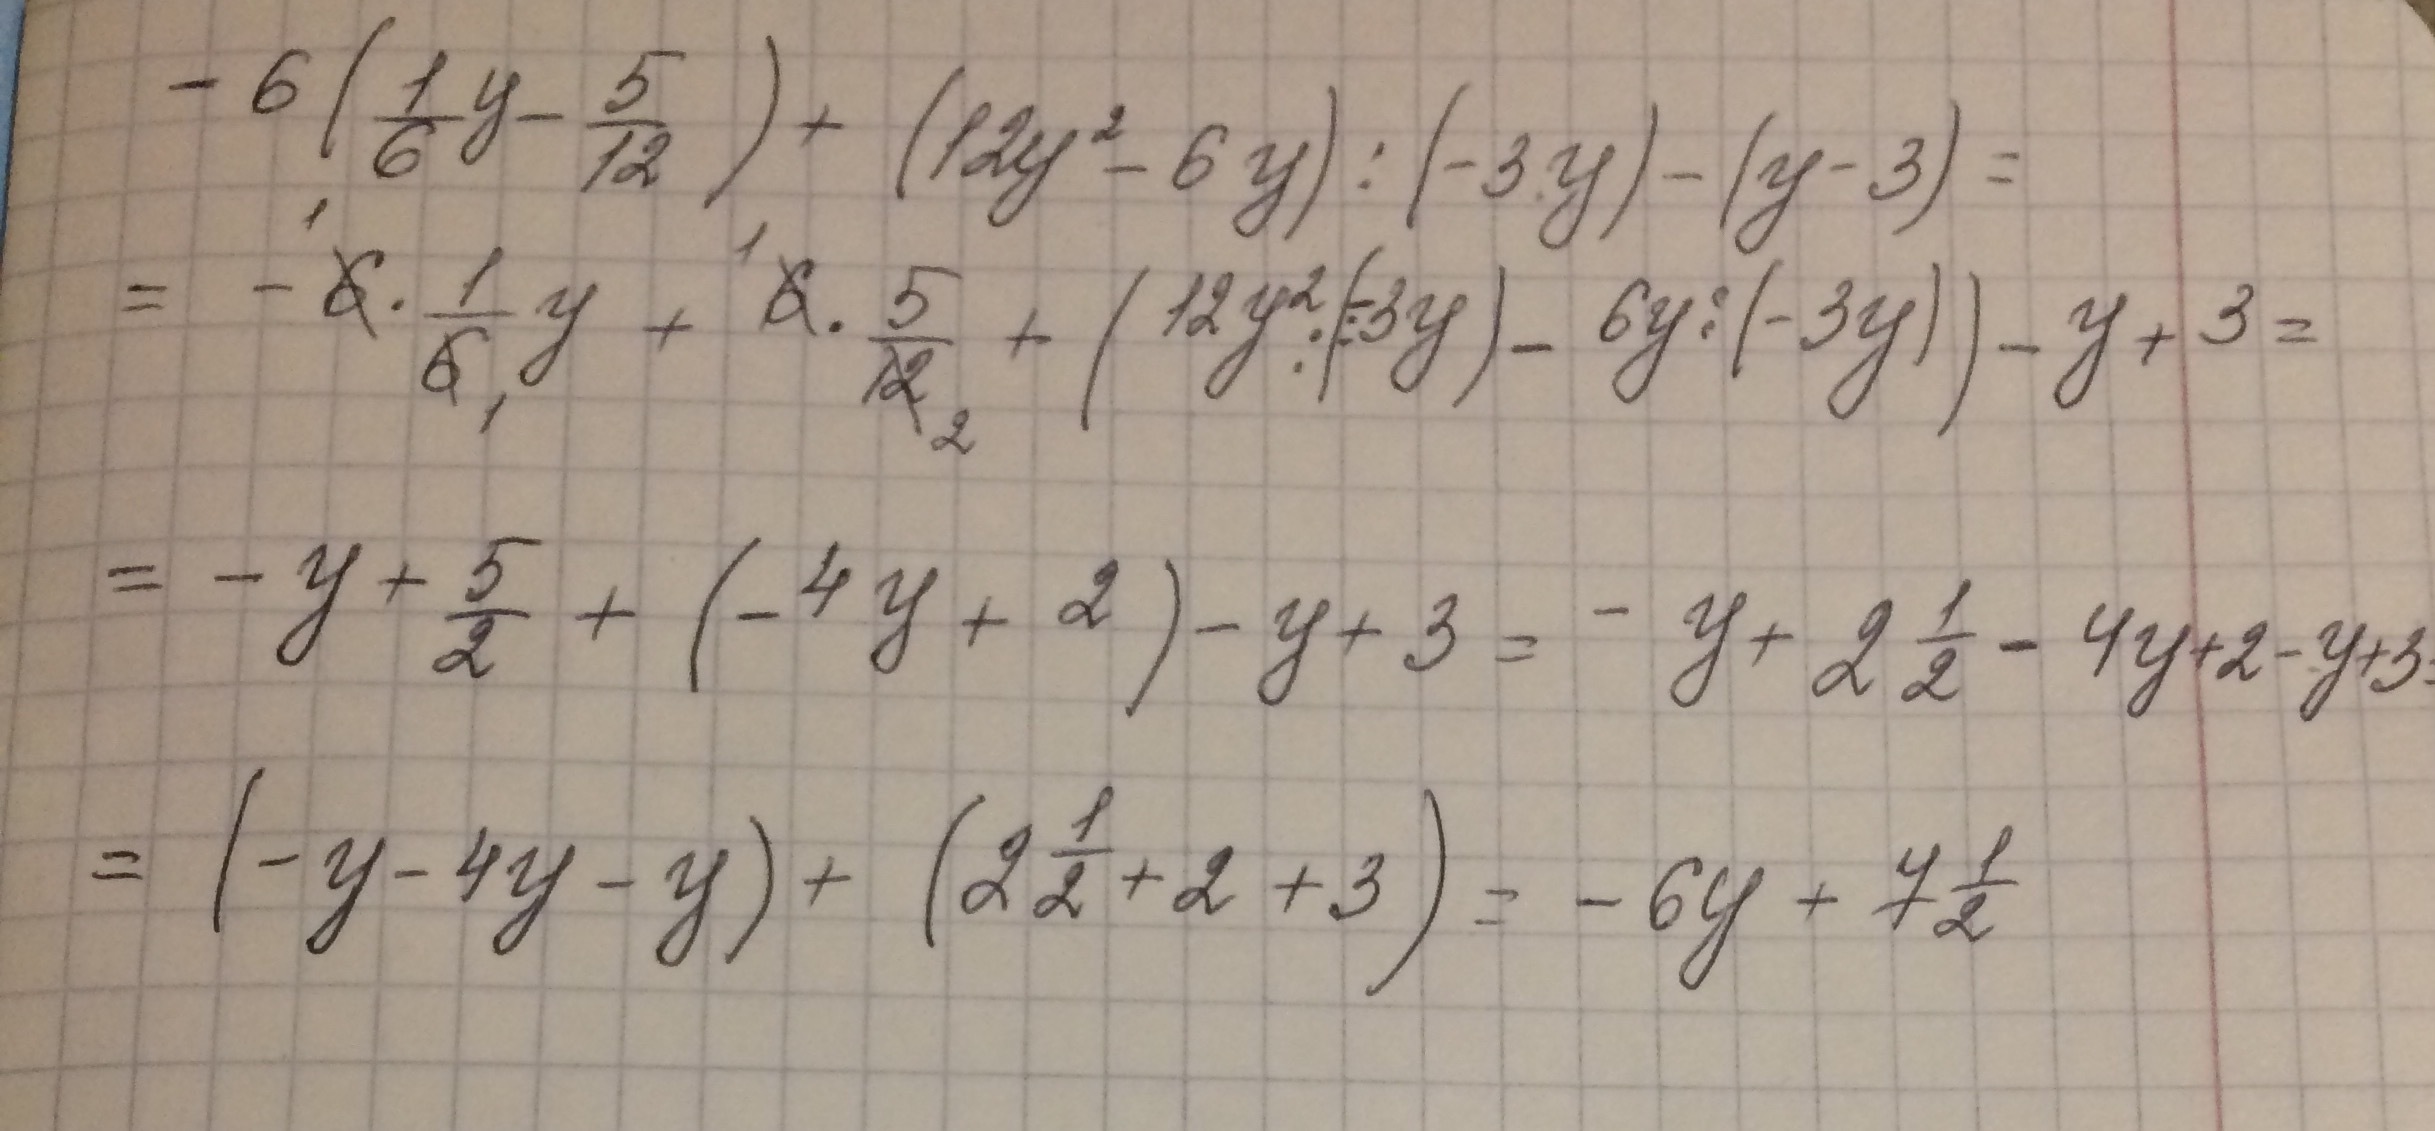 -6(1/6 y - 5/12) + (12y² - 6y) : (-3y) - (y - 3) =
= - 6¹ · 1/6₁ y + ¹6 · 5/12₂ + (12y² : (-3y) - 6y : (-3y)) - y + 3 =
= - y + 5/2 + (-4y + 2) - y + 3 = - y + 2 1/2 - 4y + 2 - y + 3 =
= (-y - 4y - y) + (2 1/2 + 2 + 3) = - 6y + 7 1/2